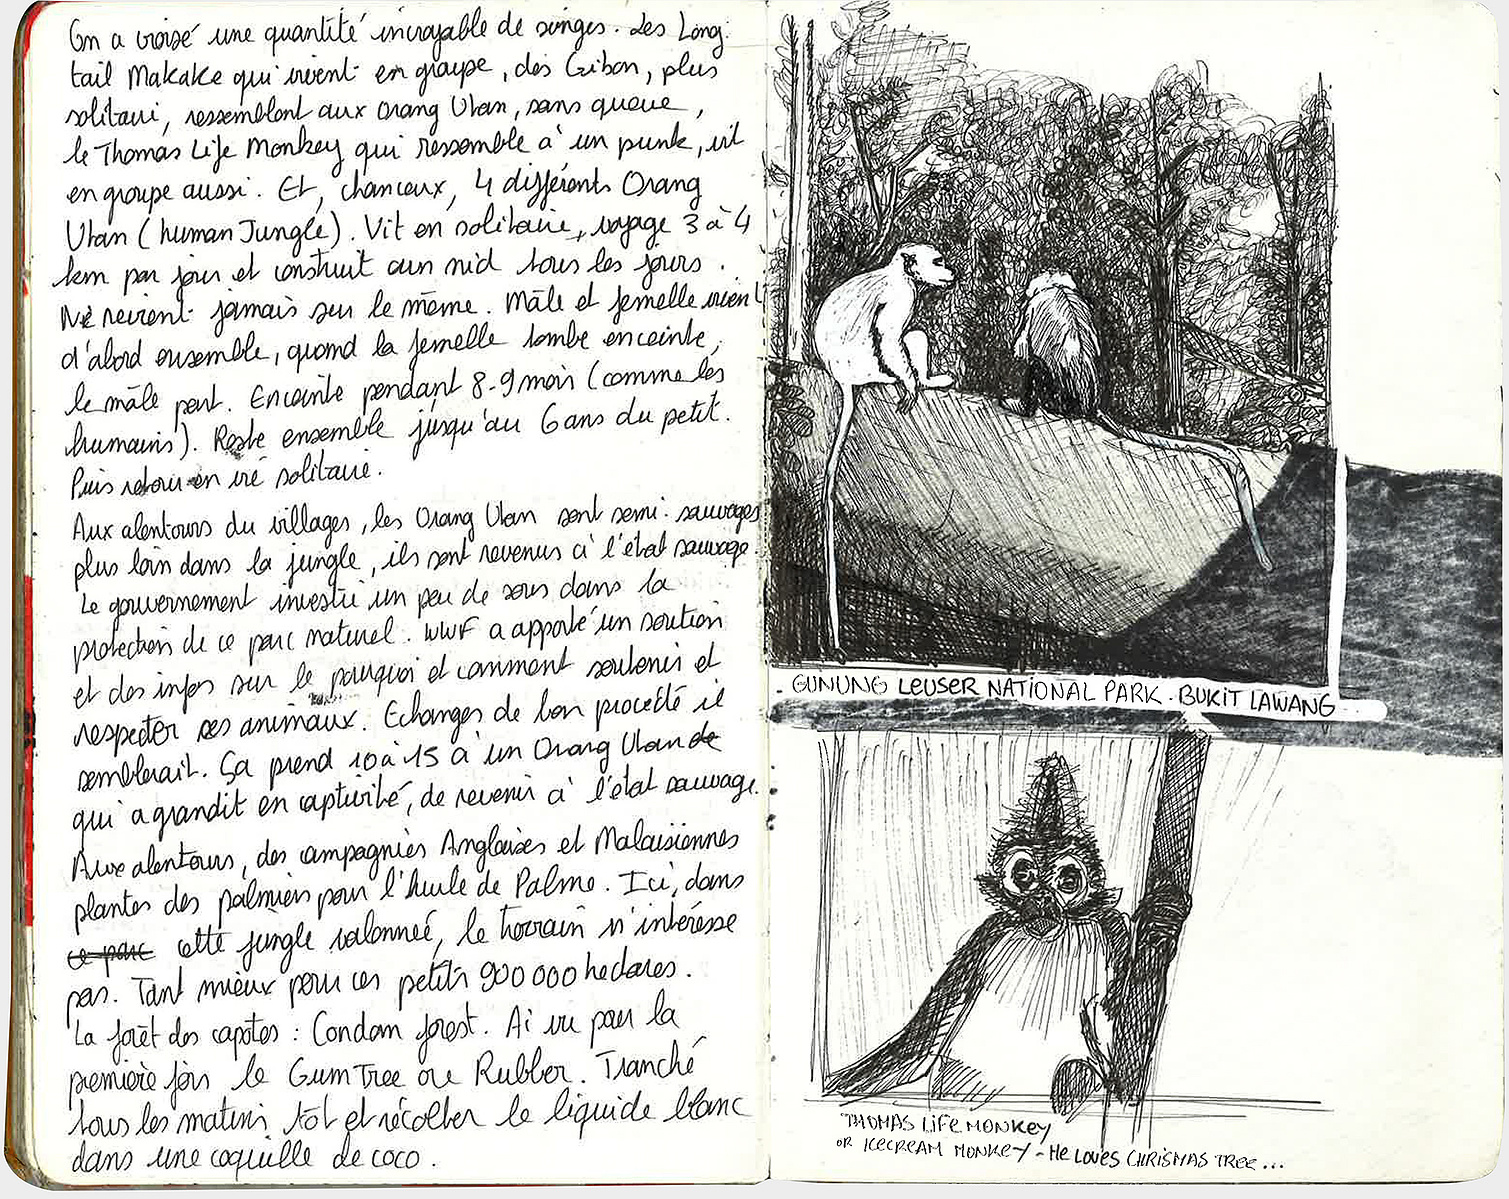 On a croisé une quantité incroyable de singes. Les Long
tail Makake qui vivent en groupe, des Gibon, plus
solitaui, ressemblent aux Orang Utan, sans queue,
le Thomas Life Monkey qui ressemble à un punk, vit
en groupe aussi. Et, chanceux, 4 différents Orang
Utan (human Jungle). Vit en solitaire, voyage 3 à 4
km par jour et construit un nid tous les jours.
Ne revient jamais sur le même. Mâle et femelle vivent
d'abord ensemble, quand la femelle tombe enceinte,
le mâle part. Enceinte pendant 8-9 mois (comme les
humains). Reste ensemble jusqu'au 6 ans du petit.
Puis retour en vie solitaire.
Aux alentours du villages, les Orang Utan sont semi-sauvages
plus loin dans la jungle, ils sont revenus à l'état sauvage.
Le gouvernement investit un peu de sous dans la
protection de ce parc naturel. WWF a apporté un soutien
et des infos sur le pourquoi et comment soutenir et
respecter ses animaux. Echanges de bon procédé il
semblerait. Ça prend 10 à 15 à un Orang Utan de
qui a grandit en captivité, de revenir à l'état sauvage.
Aux alentours, des campagnies Anglaises et Malaisiennes
plantes des palmiers pour l'huile de Palme. Ici, dans
ce parc cette jungle valonnée, le terrain n'intéresse
pas. Tant mieux pour ces petits 900 000 hectares.
La forêt des capotes : Condom forest. Ai vu pour la
première fois le Gum Tree ou Rubber. Tranché
tous les matins tôt et récolter le liquide blanc
dans une coquille de coco.
. GUNUNG LEUSER NATIONAL PARK . BUKIT LAWANG..
THOMAS LIFE MONKEY
OR ICECREAM MONKEY - HE LOVES CHRISMAS TREE...